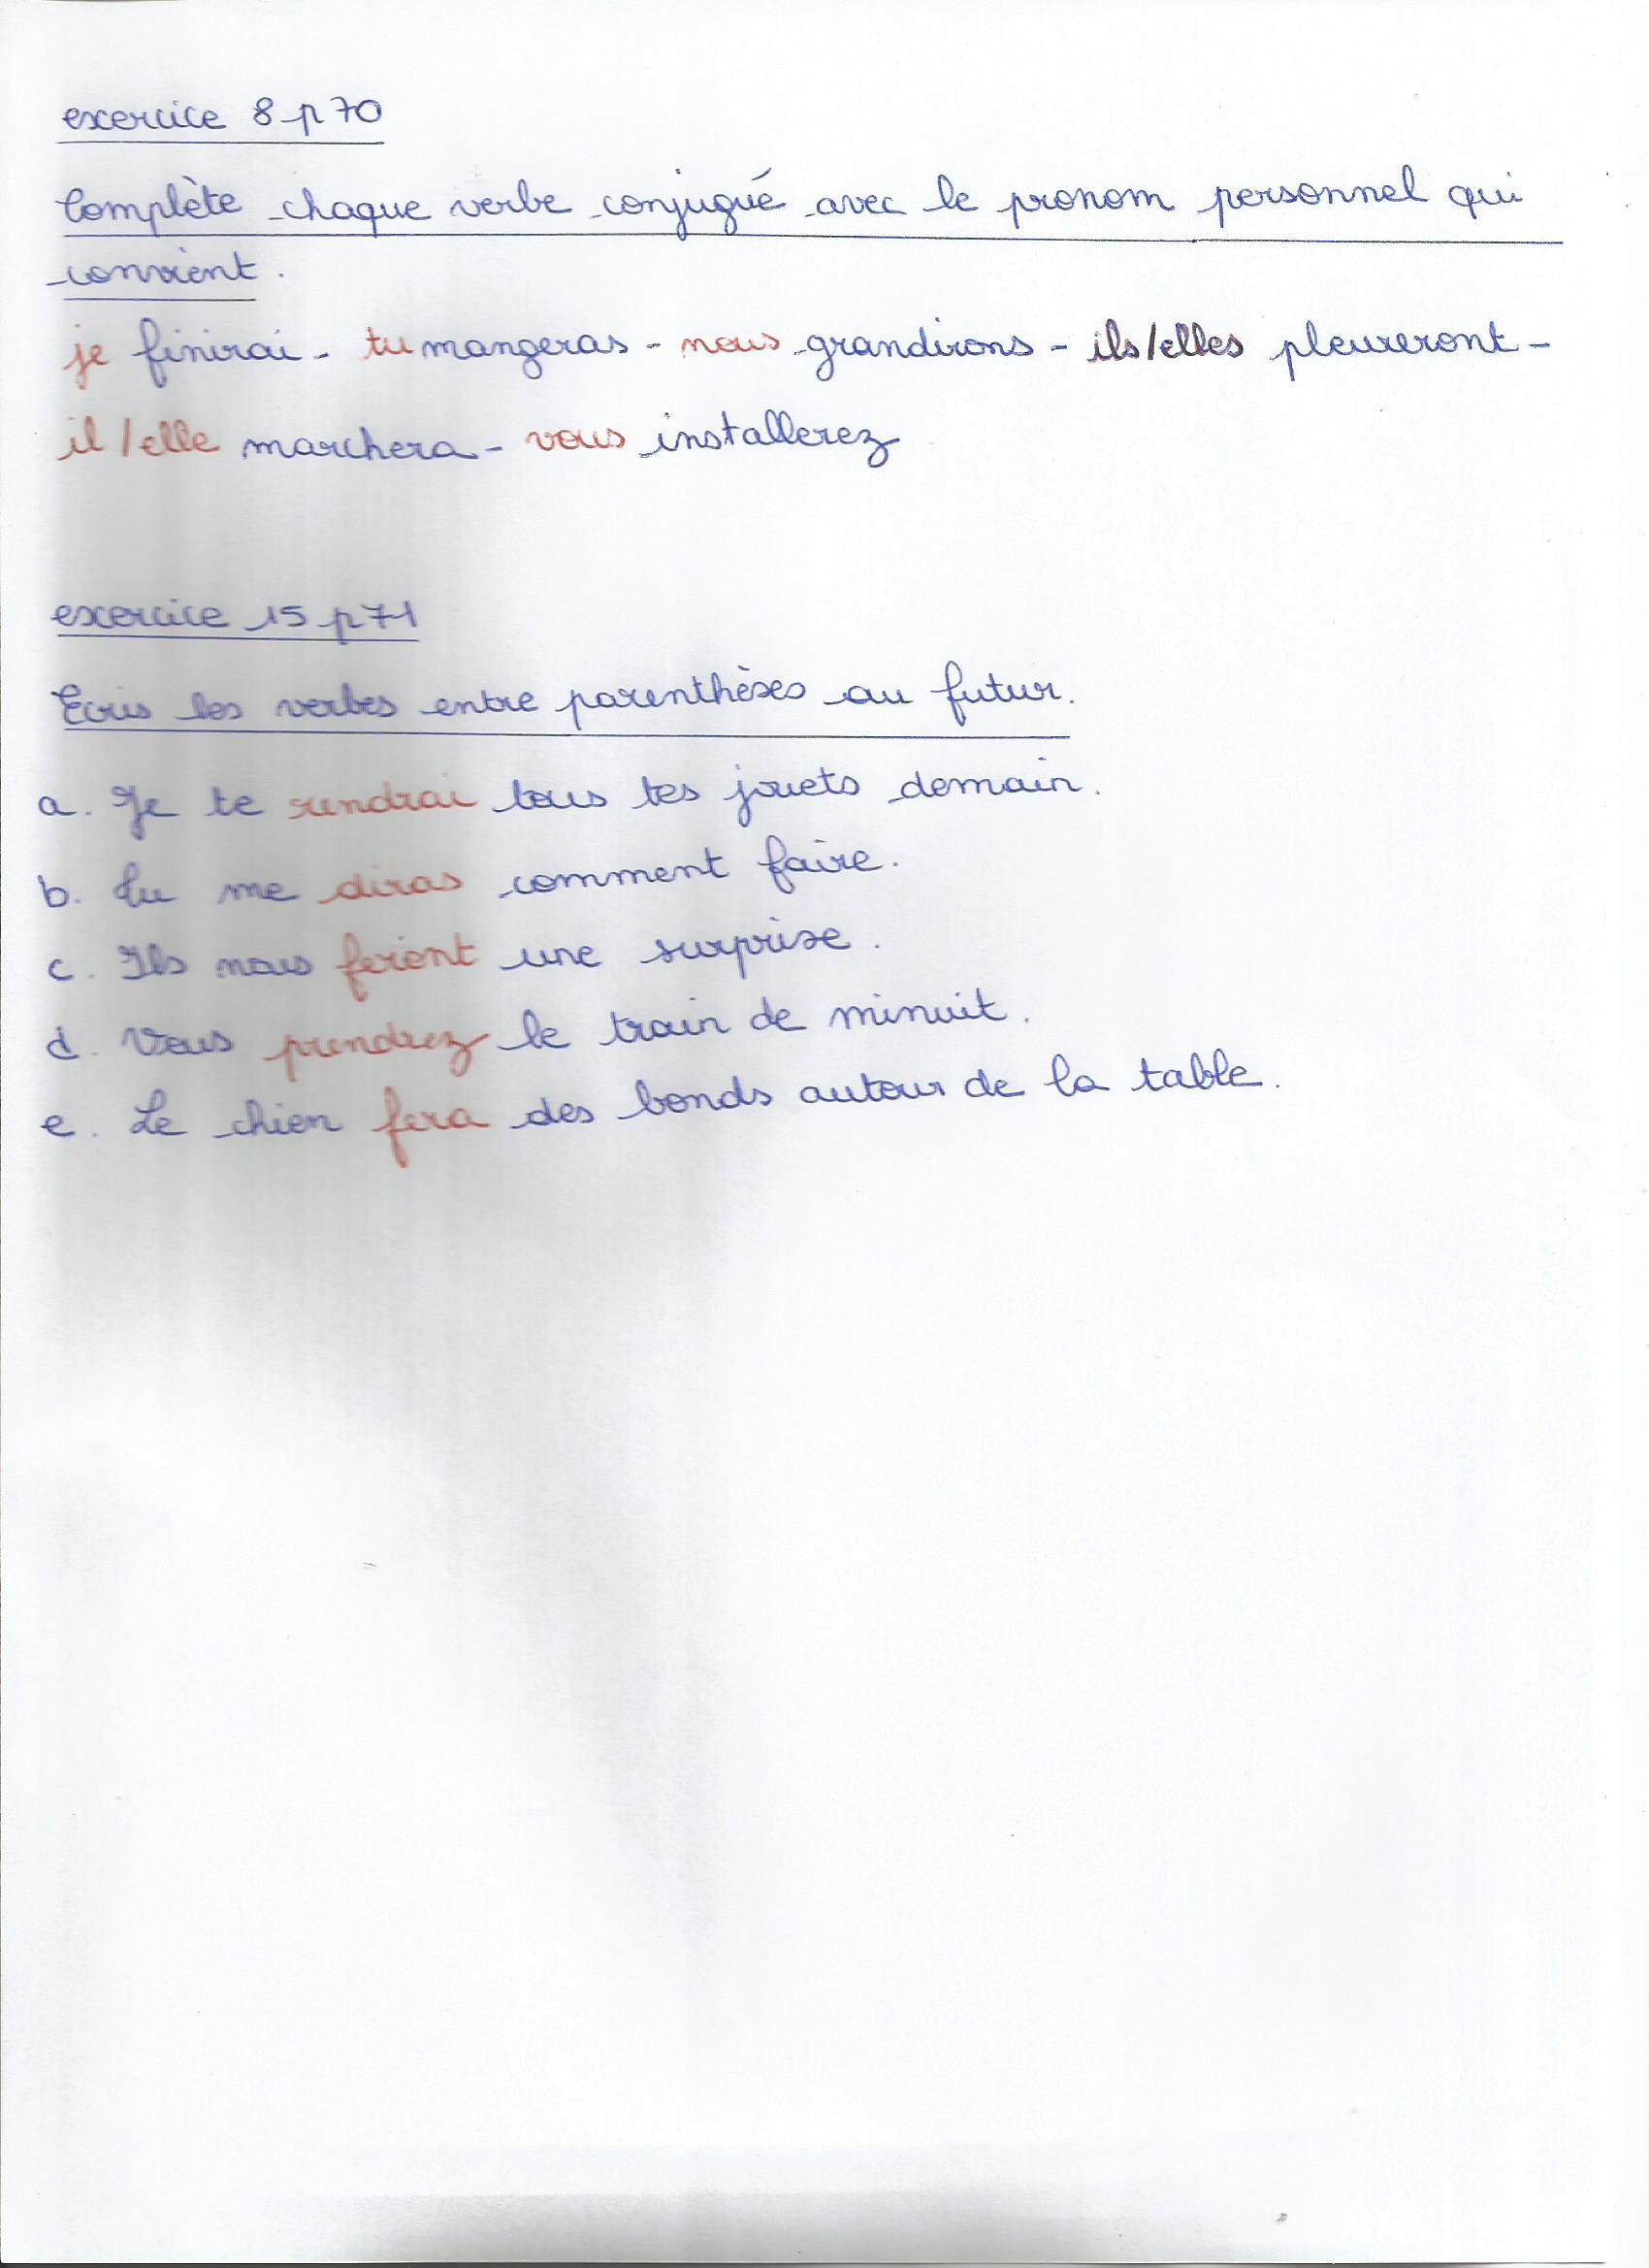 exercice 8 p 70
Complète chaque verbe conjugué avec le pronom personnel qui
convient.
je finirai - tu mangeras - nous grandirons - ils/elles pleureront -
il/elle marchera - vous installerez
exercice 15 p 71
Ecris les verbes entre parenthèses au futur.
a. Je te rendrai tous tes jouets demain.
b. Tu me diras comment faire.
c. Ils nous feront une surprise.
d. Vous prendrez le train de minuit.
e. Le chien fera des bonds autour de la table.